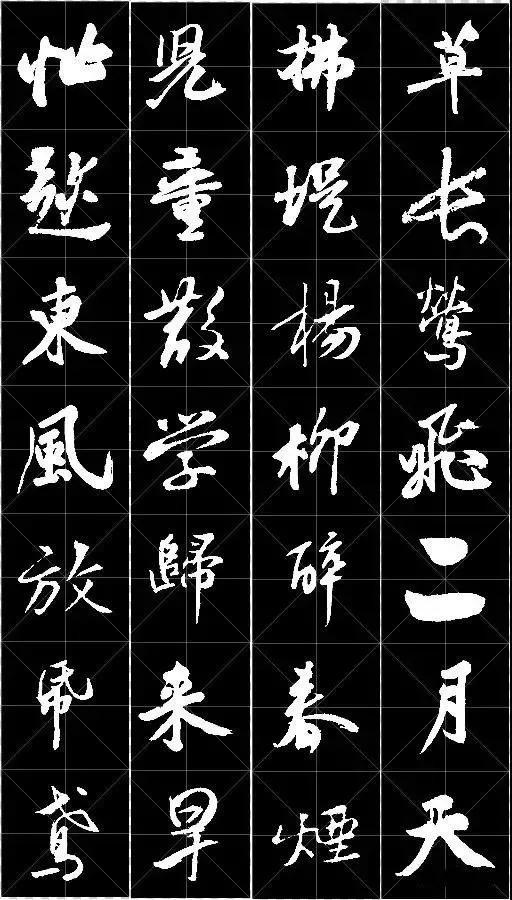 草长鶯飛二月天
拂堤楊柳酔春煙
兒童散学歸来早
忙趂東風放帋鳶